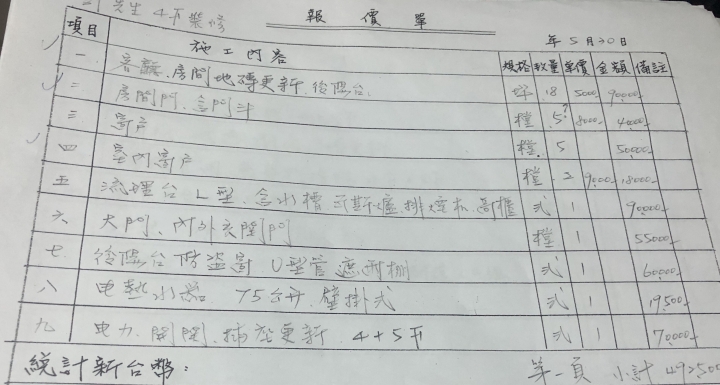 先生 4F裝修 報價單
年 5月30日
項目 施工內容 規格 數量 單價 金額 備註
一 客廳.房間地磚更新.後陽台. 坪 18 5000 90000
二 房間門.含門斗 檔 5? 8000 40000
三 窗戶 檔. 5 50000
四 室內窗戶 檔 2 9000 18000
五 流理台L型.含水槽.瓦斯爐.排煙机.吊櫃 式 1 90000
六 大門.內外 門 檔 1 55000
七 後陽台防盜窗U型管遮雨棚 式 1 60000
八 电熱水器 75公升.壁掛式 式 1 19,500
九 电力.開関.插座更新 4+5F 式 1 70000
統計新台幣: 第一頁 小計 492500